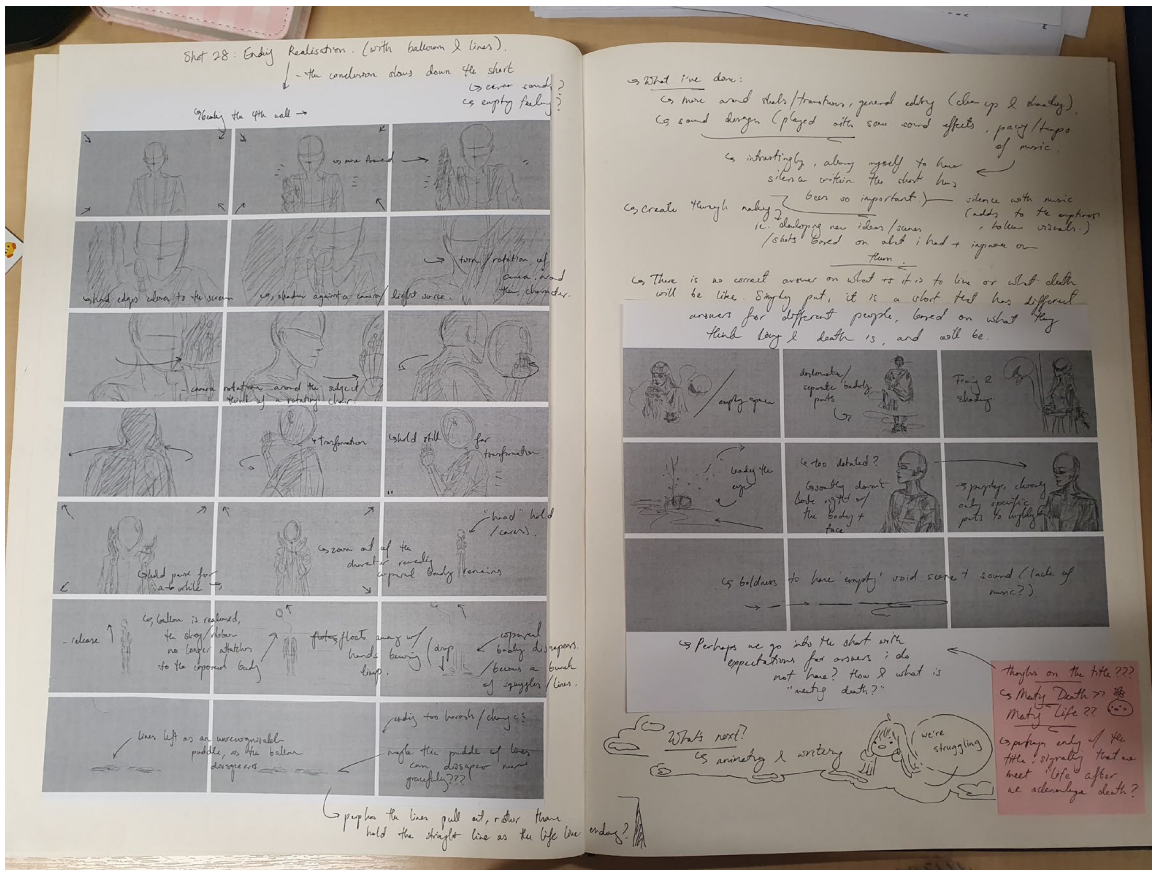 Shot 28: Ending Realisation. (with balloon & lines).
- the conclusion slows down the short
↳ eerier sound?
↳ empty feeling?
↳ breaking the 4th wall →
↳ hand edges closer to the screen
↳ shadow against a camera/light source.
↳ turn/rotation of
camera around
the character.
- camera rotations around the subject
think of a rotating chair
↳ transformation
↳ hold still for
transformation
↳ hold pose for
a while →
↳ zoom out of the
character revealing
corporeal body remains
"head" hold
/caress).
- release
↳ balloon is released,
the string/
no longer attaches
to the corporeal body
floats away w/
hands bowing
limp.
(drop
↳ corporeal
body disappears.
/becomes a bunch
of squiggles/lines.
lines left as an unrecognisable
puddle, as the balloon
disappears
ending too harsh/change?
maybe the puddle of lines
can dissaper more
gracefully???
↳ perphas the lines pull out, rather than
hold the straight line as the life line ending?
↳ What i've done:
↳ more around shots/transitions, general editing (clean up & shading).
↳ sound design (played with some sound effects, pacing/tempo
of music.
↳ intrestingly, allowing myself to have
silence within the short has
been so important)
silence with music
(adds to the emptiness
, hollow visuals.)
↳ Create through making
ie. developing new ideas/scenes
/shots based on what i had + improve on
them.
↳ There is no correct answer on what is it is to live or what death
will be like. Simply put, it is a short that has different
answers for different people, based on what they
think living & death is, and will be.
/empty space
separate bodily
parts
shading.
leading the
eye
↳ too detailed?
doesn't
look right w/
the body +
face
↳ perphaps, choosing
only specific
parts to highlight
↳ boldness to have 'empty' void scene + sound (lack of
music?).
↳ Perhaps we go into the short with
expectations for answers i do
not have? How & what is
"meeting death?"
thoughts on the title???
↳ Meeting Death??
Meeting Life??
↳ perhaps ending of the
title, signalling that we
meet 'life' after
we acknowledge death?
Whats next?
↳ animating & writing
we're
struggling